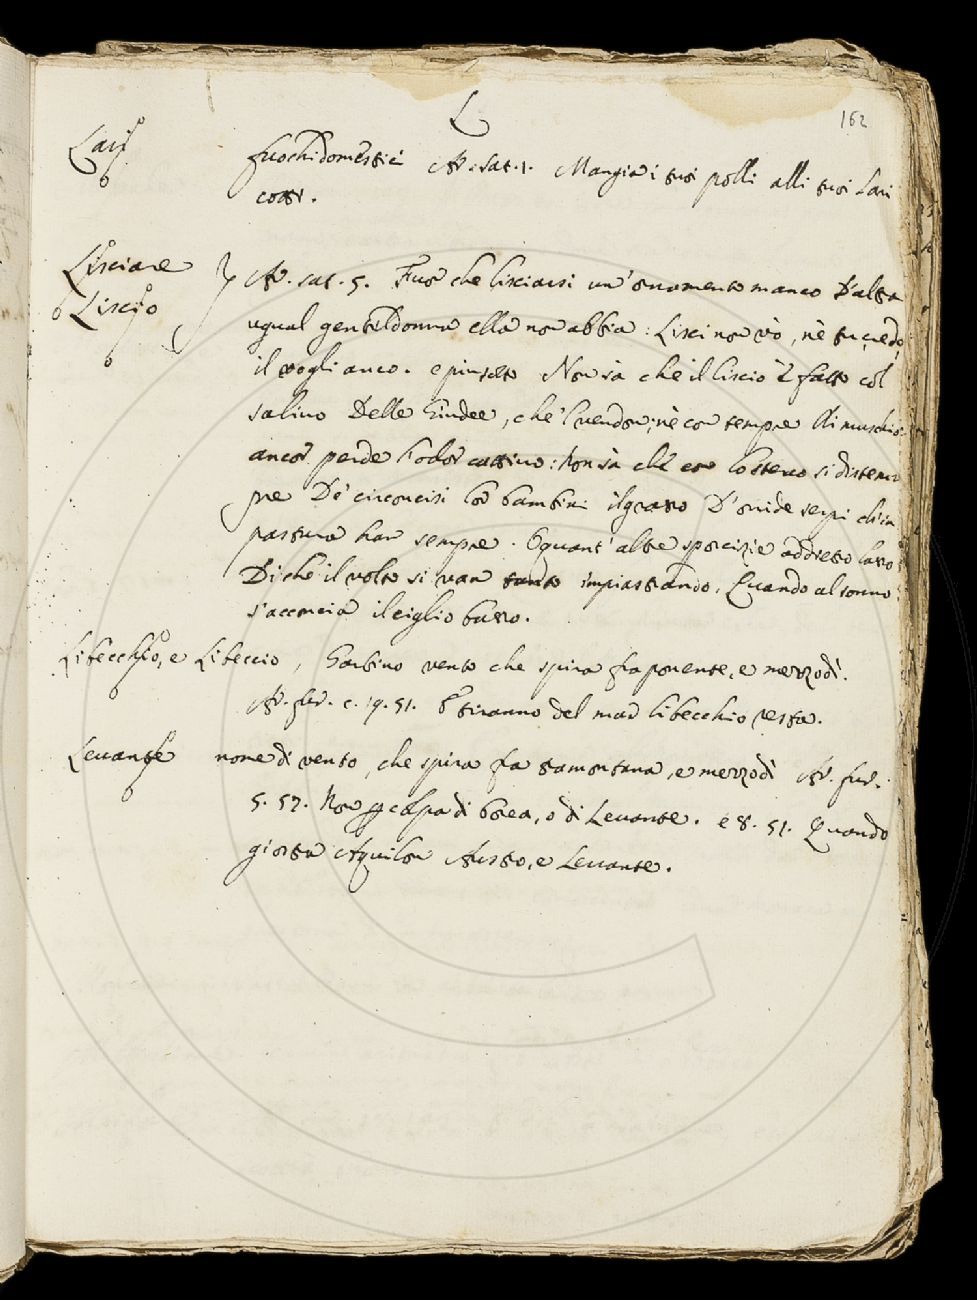 L
162
Lari fuochi domestici Ar. Sat. 1. Mangia i suoi polli alli suoi Lari
cotti.
Lisciare } Ar. sat. 5. Fuor che lisciarsi un' ornamento manco D'altra
Liscio ugual gentildonna ella non abbia: Lisci non vò, nè tu, credo,
il vogli anco. e piu sotto Non sà che il liscio è fatto col
salivo Delle Giudee, che 'l vendon; nè con tempre Di muschio
ancor perde l'odor cattivo: Non sà che con lo sterco si distem
pre De' circoncisi lor bambini il grasso D'oride serpi ch'in
pastura han sempre. O quant' altre sporcizie addietro lasso
Di che il volto si van tanto impiastrando, Quando al sonno
s'acconcia il ciglio basso.
Libecchio, e Libeccio, Garbino vento che spira fra ponente, e mezzodì.
Ar. fur. c. 19. 51. E tiranno del mar libecchio resta.
Levante nome di vento, che spira fra tramontana, e mezzodì Ar. fur.
5. 57. Non colpa di borea, o di Levante. e 8. 51. Quando
giostra Aquilon Austro, e Levante.